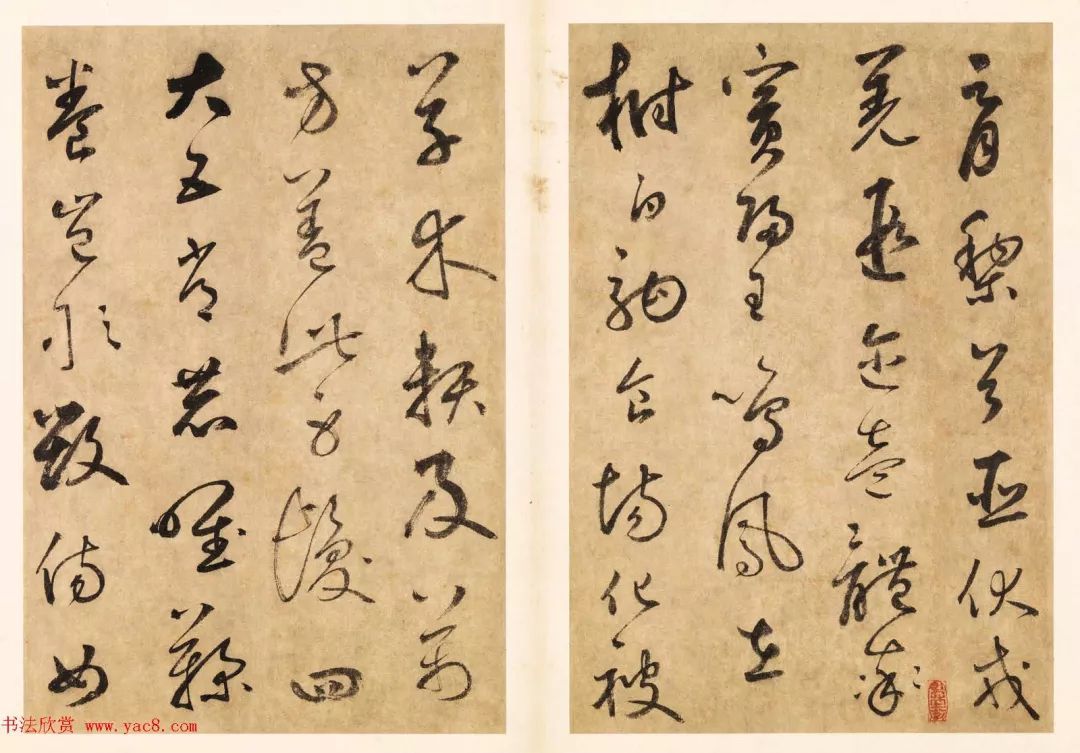 育黎首臣伏戎
羌遐邇壹體率
賓歸王鳴鳳在
樹白駒食場化被
草木賴及萬
方蓋此身髮四
大五常恭惟鞠
養豈敢毀傷女
书法欣赏 www.yac8.com